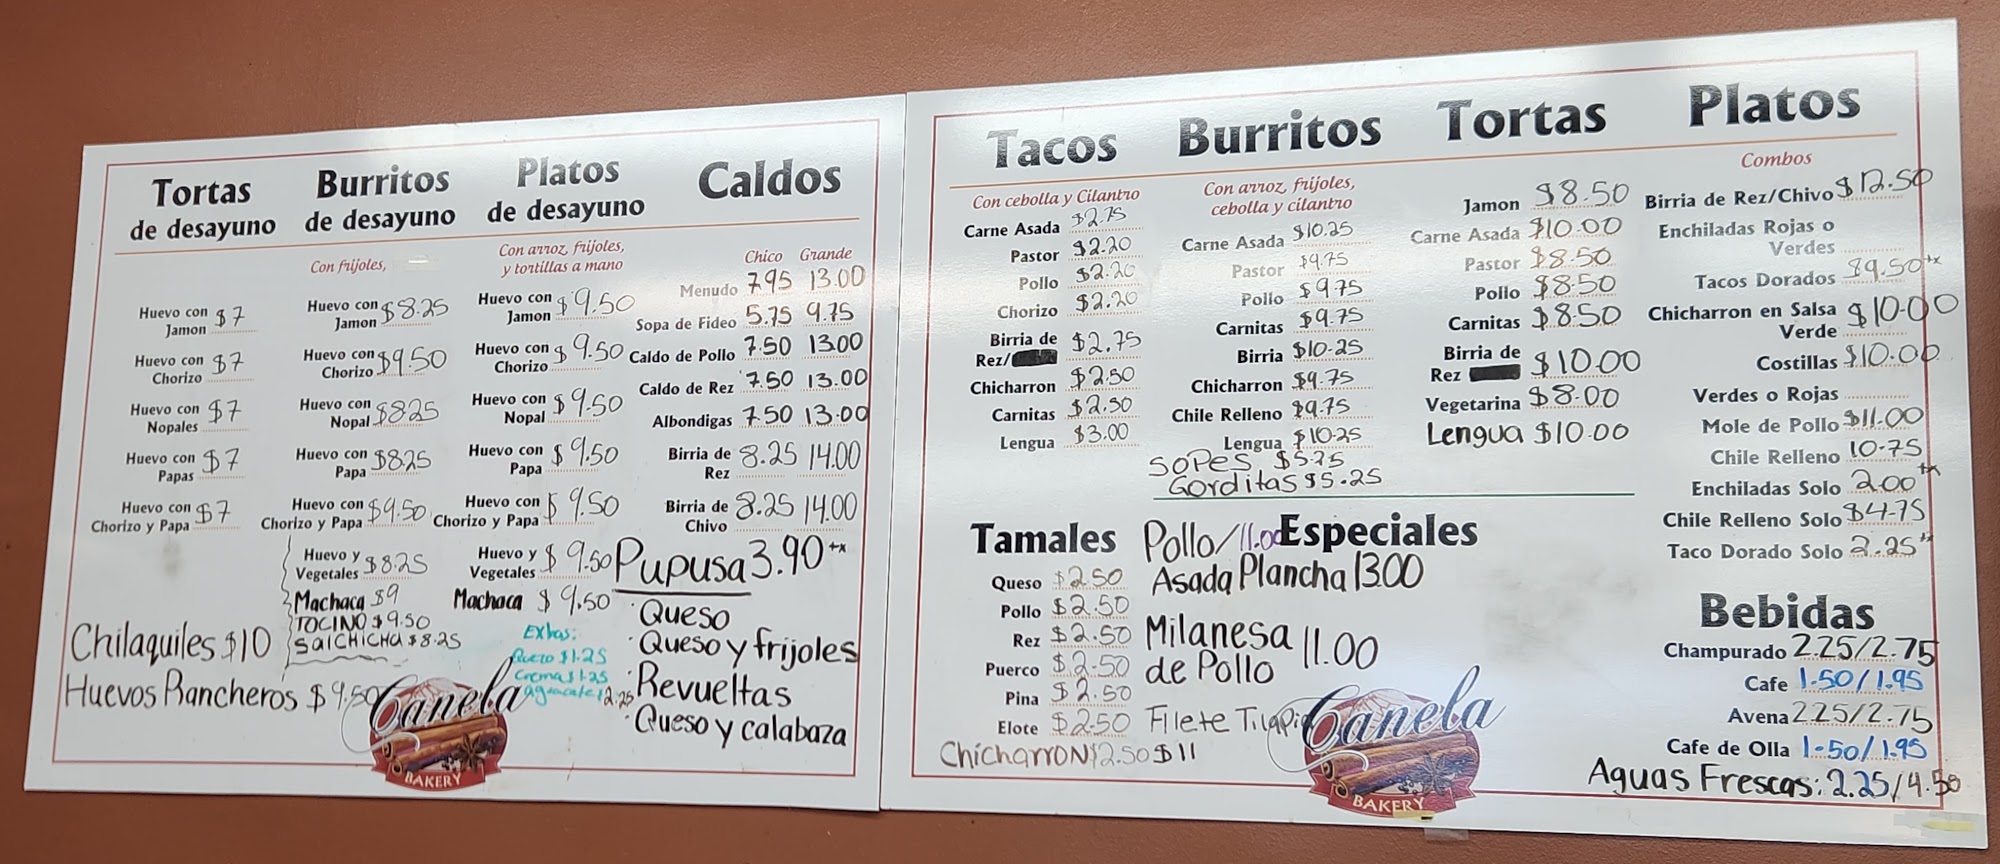 Tortas
de desayuno
Huevo con
Jamon $7
Huevo con
Chorizo $7
Huevo con
Nopales $7
Huevo con
Papas $7
Huevo con
Chorizo y Papa $7
Chilaquiles $10
Huevos Rancheros $9.50
Burritos
de desayuno
Con frijoles,
Huevo con
Jamon $8.25
Huevo con
Chorizo $9.50
Huevo con
Nopal $8.25
Huevo con
Papa $8.25
Huevo con
Chorizo y Papa $9.50
Huevo y
Vegetales $8.25
Machaca $9
TOCINO $9.50
SalCHICHA $8.25
Platos
de desayuno
Con arroz, frijoles,
y tortillas a mano
Huevo con
Jamon $9.50
Huevo con
Chorizo $9.50
Huevo con
Nopal $9.50
Huevo con
Papa $9.50
Huevo con
Chorizo y Papa $9.50
Huevo y
Vegetales $9.50
Machaca $9.50
Extras:
Queso $1.25
Crema $1.25
aguacate $2.25
Canela
BAKERY
Caldos
Chico Grande
Menudo 7.95 13.00
Sopa de Fideo 5.75 9.75
Caldo de Pollo 7.50 13.00
Caldo de Rez 7.50 13.00
Albondigas 7.50 13.00
Birria de
Rez 8.25 14.00
Birria de
Chivo 8.25 14.00
Pupusa 3.90 +x
·Queso
·Queso y frijoles
·Revueltas
·Queso y calabaza
Tacos
Con cebolla y Cilantro
Carne Asada $2.75
Pastor $2.20
Pollo $2.20
Chorizo $2.20
Birria de
Rez/ $2.75
Chicharron $2.50
Carnitas $2.50
Lengua $3.00
Burritos
Con arroz, frijoles,
cebolla y cilantro
Carne Asada $10.25
Pastor $9.75
Pollo $9.75
Carnitas $9.75
Birria $10.25
Chicharron $9.75
Chile Relleno $9.75
Lengua $10.25
SOPES $5.75
Gorditas $5.25
Tortas
Jamon $8.50
Carne Asada $10.00
Pastor $8.50
Pollo $8.50
Carnitas $8.50
Birria de
Rez $10.00
Vegetarina $8.00
Lengua $10.00
Platos
Combos
Birria de Rez/Chivo $12.50
Enchiladas Rojas o
Verdes
Tacos Dorados $9.50 +x
Chicharron en Salsa
Verde $10.00
Costillas $10.00
Verdes o Rojas
Mole de Pollo $11.00
Chile Relleno 10.75
Enchiladas Solo 2.00 +x
Chile Relleno Solo $4.75
Taco Dorado Solo 2.25 +x
Tamales
Queso $2.50
Pollo $2.50
Rez $2.50
Puerco $2.50
Pina $2.50
Elote $2.50
ChicharroN $2.50
Especiales
Pollo/11.00
Asada Plancha 13.00
Milanesa
de Pollo 11.00
Filete Tilapia
$11
Canela
BAKERY
Bebidas
Champurado 2.25/2.75
Cafe 1.50/1.95
Avena 2.25/2.75
Cafe de Olla 1.50/1.95
Aguas Frescas: 2.25/4.50